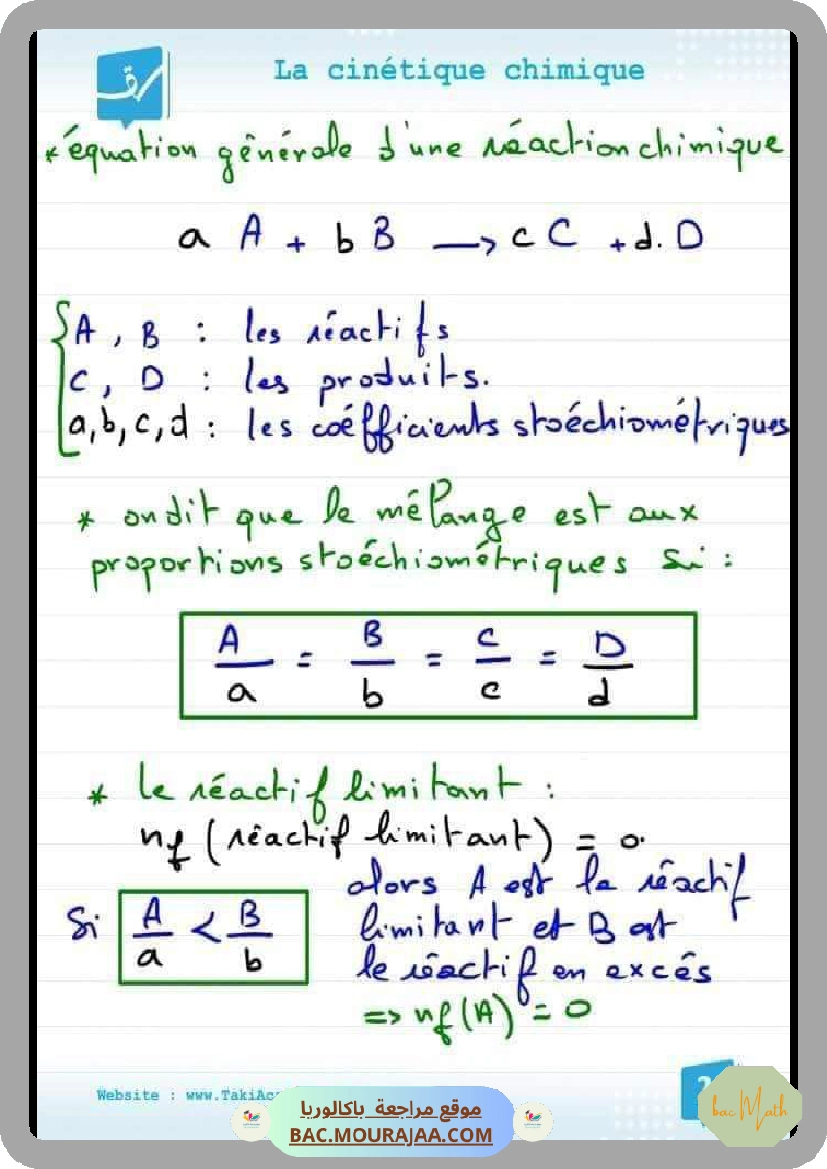 La cinétique chimique
* équation générale d'une réaction chimique
a A + b B → c C + d. D
A, B : les réactifs
C, D : les produits.
a, b, c, d : les coéfficients stoéchiométriques
* on dit que le mélange est aux
proportions stoéchiométriques si :
A/a = B/b = C/c = D/d
* le réactif limitant :
nf (réactif limitant) = 0.
Si A/a < B/b alors A est le réactif
limitant et B est
le réactif en excés
=> nf(A) = 0
Website : www.TakiAc
موقع مراجعة باكالوريا
BAC.MOURAJAA.COM
bac Math